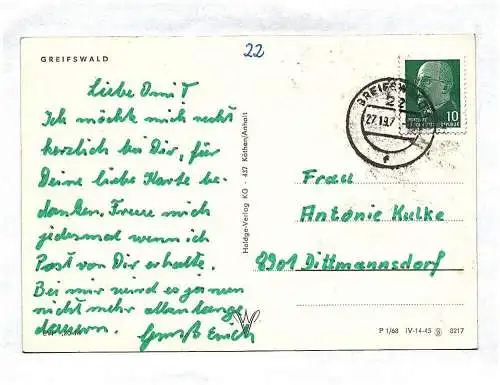 GREIFSWALD
22
Liebe Omi!
Ich möchte mich recht
herzlich bei Dir, für
Deine liebe Karte be-
danken. Freue mich
jedesmal wenn ich
Post von Dir erhalte.
Bei mir wird es ja nun
nicht mehr allzu lange
dauern. Gruß Erich
Holdge-Verlag KG · 437 Köthen/Anhalt
GREIFSWALD
22
27.10.7
f
10
Frau
Antonie Kulke
8901 Dittmannsdorf
P 1/68 IV-14-45 8217